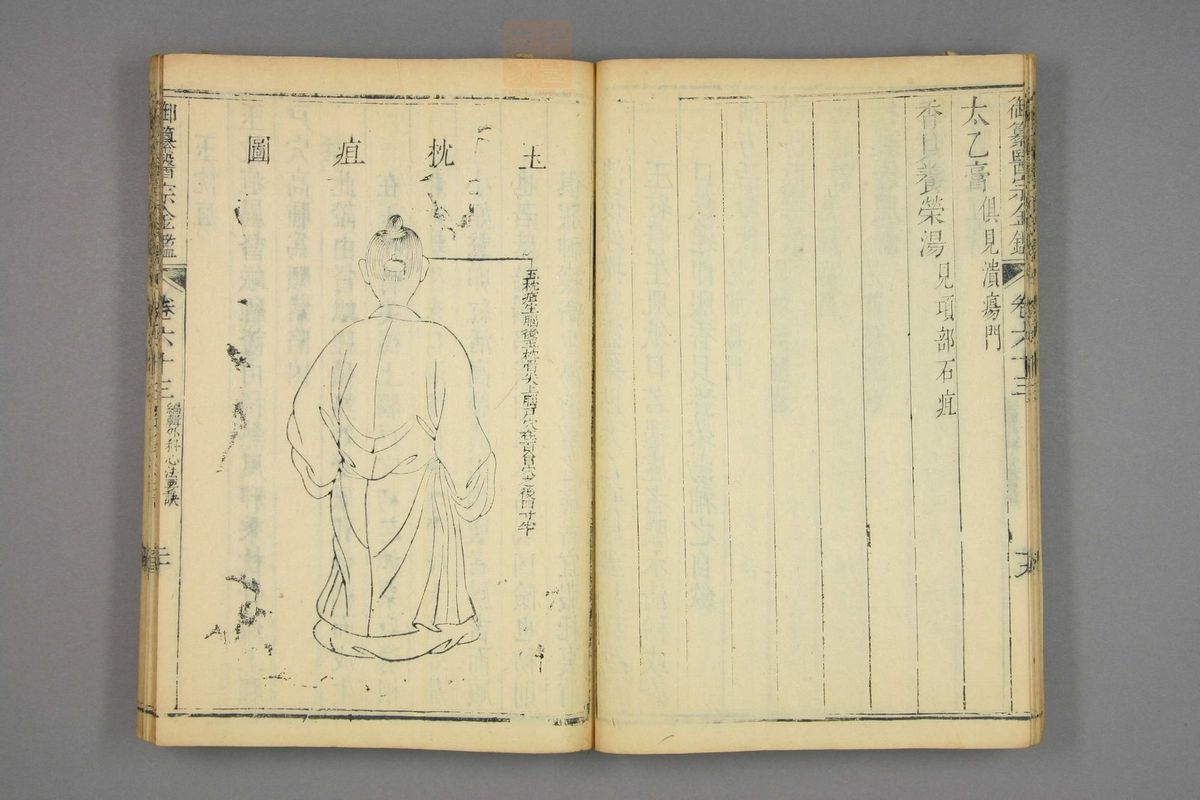 御纂醫宗金鑑 卷六十三
太乙膏俱見潰瘍門
香貝養榮湯見項部石疽
玉枕疽圖
玉枕疽生腦後玉枕骨尖上腦戶穴在百會穴之後四寸半
御纂醫宗金鑑 卷六十三 編輯外科心法要訣